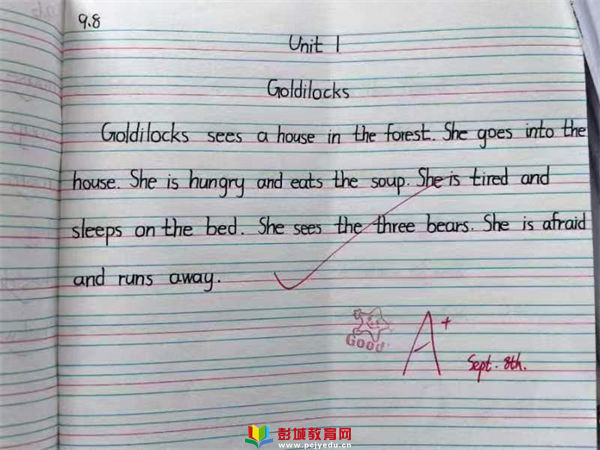 9.8
Unit 1
Goldilocks
Goldilocks sees a house in the forest. She goes into the
house. She is hungry and eats the soup. She is tired and
sleeps on the bed. She sees the three bears. She is afraid
and runs away.
Good
A+
Sept. 8th.
彭城教育网
www.pcjyedu.cn